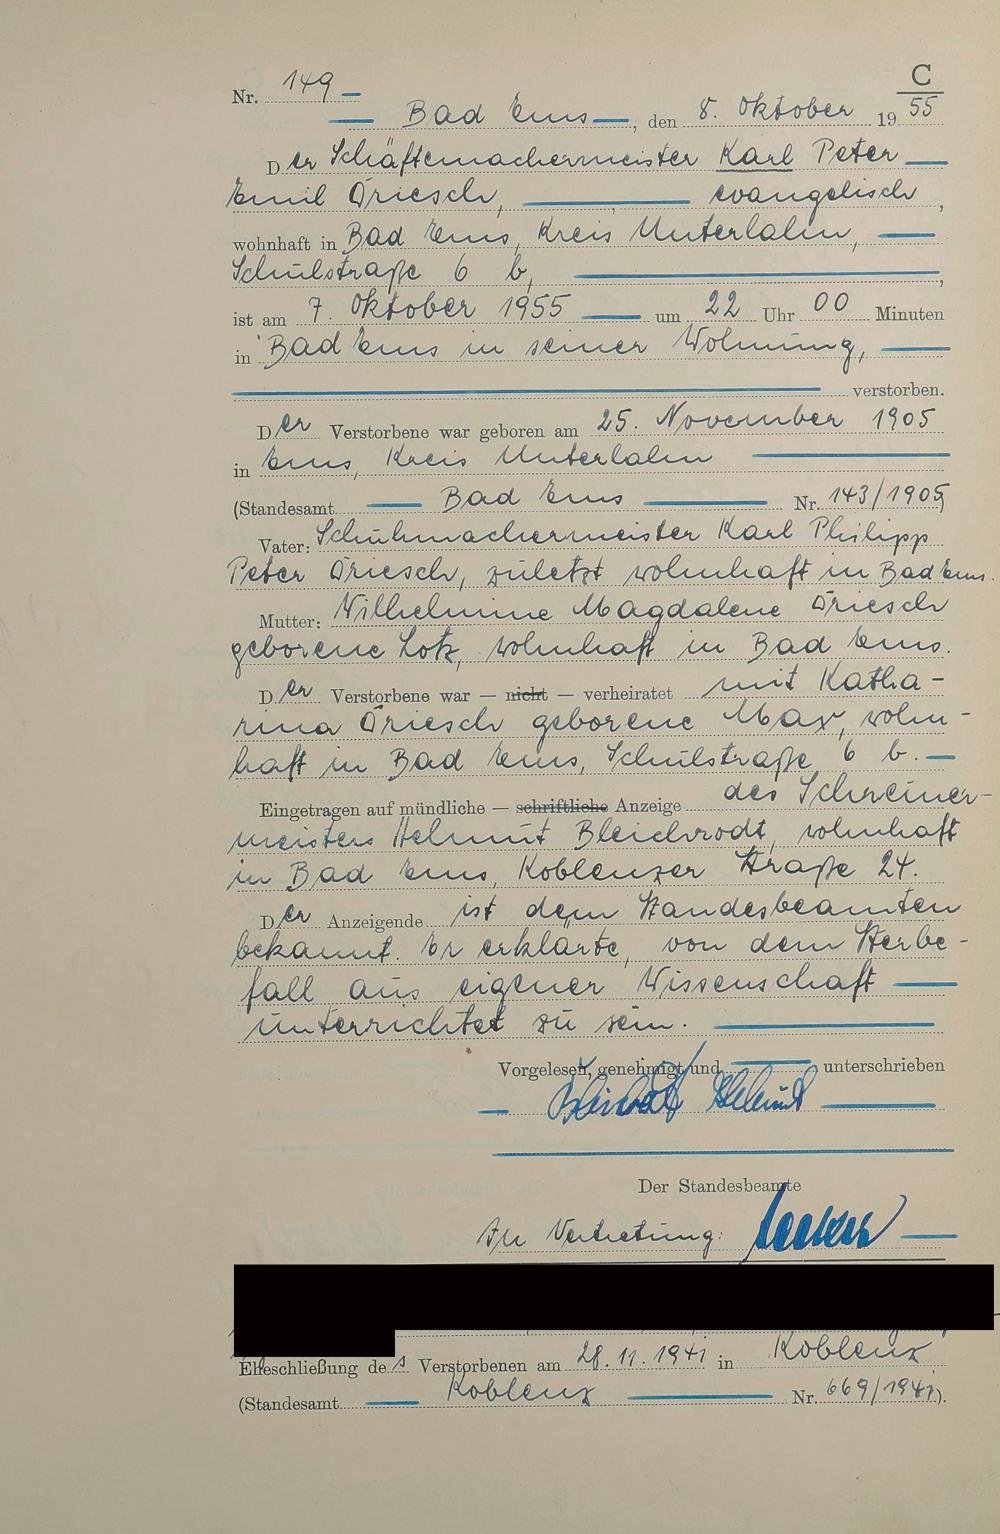 C
Nr. 149
Bad Ems, den 8. Oktober 1955
Der Schäftemachermeister Karl Peter
Emil Driesch, evangelisch,
wohnhaft in Bad Ems, Kreis Unterlahn,
Schulstraße 6 b,
ist am 7. Oktober 1955 um 22 Uhr 00 Minuten
in Bad Ems in seiner Wohnung,
verstorben.
Der Verstorbene war geboren am 25. November 1905
in Ems, Kreis Unterlahn
(Standesamt Bad Ems Nr. 143/1905)
Vater: Schuhmachermeister Karl Philipp
Peter Driesch, zuletzt wohnhaft in Bad Ems.
Mutter: Wilhelmine Magdalene Driesch
geborene Lotz, wohnhaft in Bad Ems.
Der Verstorbene war — nicht — verheiratet mit Katha-
rina Driesch geborene Max, wohn-
haft in Bad Ems, Schulstraße 6 b.
Eingetragen auf mündliche — schriftliche Anzeige des Schreiner-
meisters Helmut Bleichrodt, wohnhaft
in Bad Ems, Koblenzer Straße 24.
Der Anzeigende ist dem Standesbeamten
bekannt. Er erklärte, von dem Sterbe-
fall aus eigener Wissenschaft
unterrichtet zu sein.
Vorgelesen, genehmigt und unterschrieben
Helmut
Der Standesbeamte
In Vertretung:
Eheschließung des Verstorbenen am 28.11.1941 in Koblenz
(Standesamt Koblenz Nr. 669/1941).